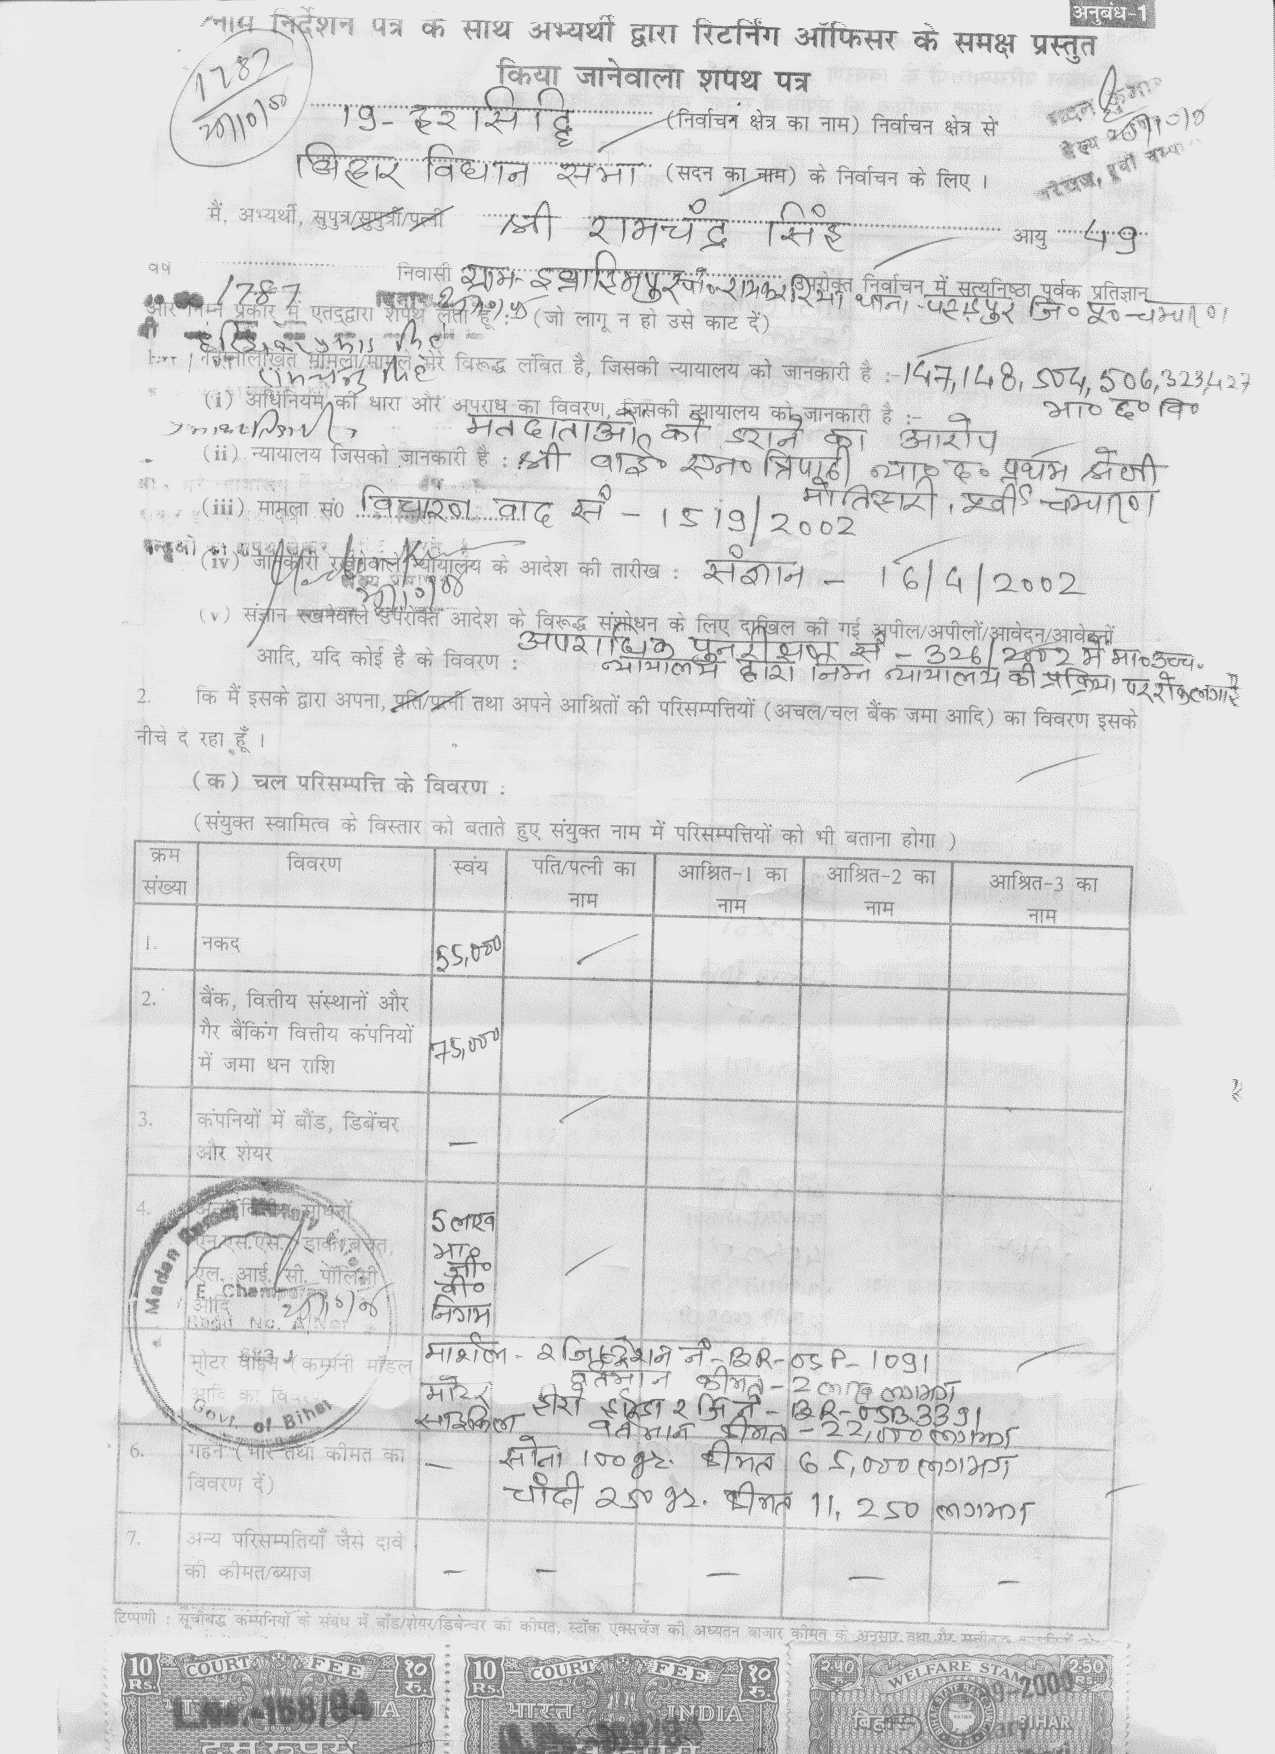 अनुबंध-1
नाम निर्देशन पत्र क साथ अभ्यर्थी द्वारा रिटर्निंग ऑफिसर के समक्ष प्रस्तुत
किया जानेवाला शपथ पत्र
1787
19- हरसिद्धि (निर्वाचन क्षेत्र का नाम) निर्वाचन क्षेत्र से
बिहार विधान सभा (सदन का नाम) के निर्वाचन के लिए ।
मैं, अभ्यर्थी, सुपुत्र/सुपुत्री/पत्नी श्री रामचंद्र सिंह आयु 49
वर्ष निवासी ग्राम- इब्राहिमपुर उपरोक्त निर्वाचन में सत्यनिष्ठा पूर्वक प्रतिज्ञान
1787 थाना - पहाड़पुर जि० पू० - चम्पारण
और निम्न प्रकार में एतद्द्वारा शपथ लेता हूँ : (जो लागू न हो उसे काट दें)
निम्नलिखित मामला/मामले मेरे विरूद्ध लंबित है, जिसकी न्यायालय को जानकारी है :- 147, 148, 504, 506, 323, 427
भा० द० वि०
(i) अधिनियम की धारा और अपराध का विवरण, जिसकी न्यायालय को जानकारी है :-
मतदाताओं को डराने का आरोप
(ii) न्यायालय जिसको जानकारी है : श्री वाई० एन० त्रिपाठी न्या० द० प्रथम श्रेणी
मोतिहारी, पूर्वी चम्पारण
(iii) मामला सं0 विचारण वाद सं - 1519/2002
(iv) जानकारी रखनेवाले न्यायालय के आदेश की तारीख : संज्ञान - 16/4/2002
(v) संज्ञान रखनेवाले उपरोक्त आदेश के विरूद्ध संशोधन के लिए दाखिल की गई अपील/अपीलों/आवेदन/आवेदनों
आदि, यदि कोई है के विवरण : अपराधिक पुनरीक्षण सं - 326/2002 में मा० उच्च
न्यायालय द्वारा निम्न न्यायालय की प्रक्रिया पर रोक लगाई
2. कि मैं इसके द्वारा अपना, पति/पत्नी तथा अपने आश्रितों की परिसम्पत्तियों (अचल/चल बैंक जमा आदि) का विवरण इसके
नीचे दे रहा हूँ ।
(क) चल परिसम्पत्ति के विवरण :
(संयुक्त स्वामित्व के विस्तार को बताते हुए संयुक्त नाम में परिसम्पत्तियों को भी बताना होगा )
क्रम संख्या विवरण स्वंय पति/पत्नी का नाम आश्रित-1 का नाम आश्रित-2 का नाम आश्रित-3 का नाम
1. नकद 55,000
2. बैंक, वित्तीय संस्थानों और
गैर बैंकिंग वित्तीय कंपनियों
में जमा धन राशि 75,000
3. कंपनियों में बौंड, डिबेंचर
और शेयर —
4. 5 लाख
एन.एस.एस. डाक बचत, भा०
एल. आई. सी. पॉलिसी जी० बी०
आदि निगम
मोटर वाहन (कम्पनी मॉडल मार्शल - रजिस्ट्रेशन नं - BR-05P-1091
वर्तमान कीमत - 2 लाख लगभग
मोटर साईकिल हीरो होंडा र जि नं - BR-05B-3391
वर्तमान कीमत - 22,000 लगभग
6. गहने (भार तथा कीमत का
विवरण दें) — सोना 100 ग्रा. कीमत 65,000 लगभग
चाँदी 250 ग्रा. कीमत 11,250 लगभग
7. अन्य परिसम्पतियाँ जैसे दावे
की कीमत/ब्याज — — — — —
टिप्पणी : सूचीबद्ध कम्पनियों के संबंध में बौंड/शेयर/डिबेन्चर की कीमत, स्टॉक एक्सचेंज की अध्यतन बाजार कीमत के अनुसार तथा गैर
Madan Kumar
E. Champaran
Regd No.
Govt. of Bihar
10 Rs. COURT FEE १० रु.
भारत INDIA
दस रुपये
10 Rs. COURT FEE १० रु.
भारत INDIA
2.50 WELFARE STAMP 2.50
बिहार BIHAR
L.No.-168/94